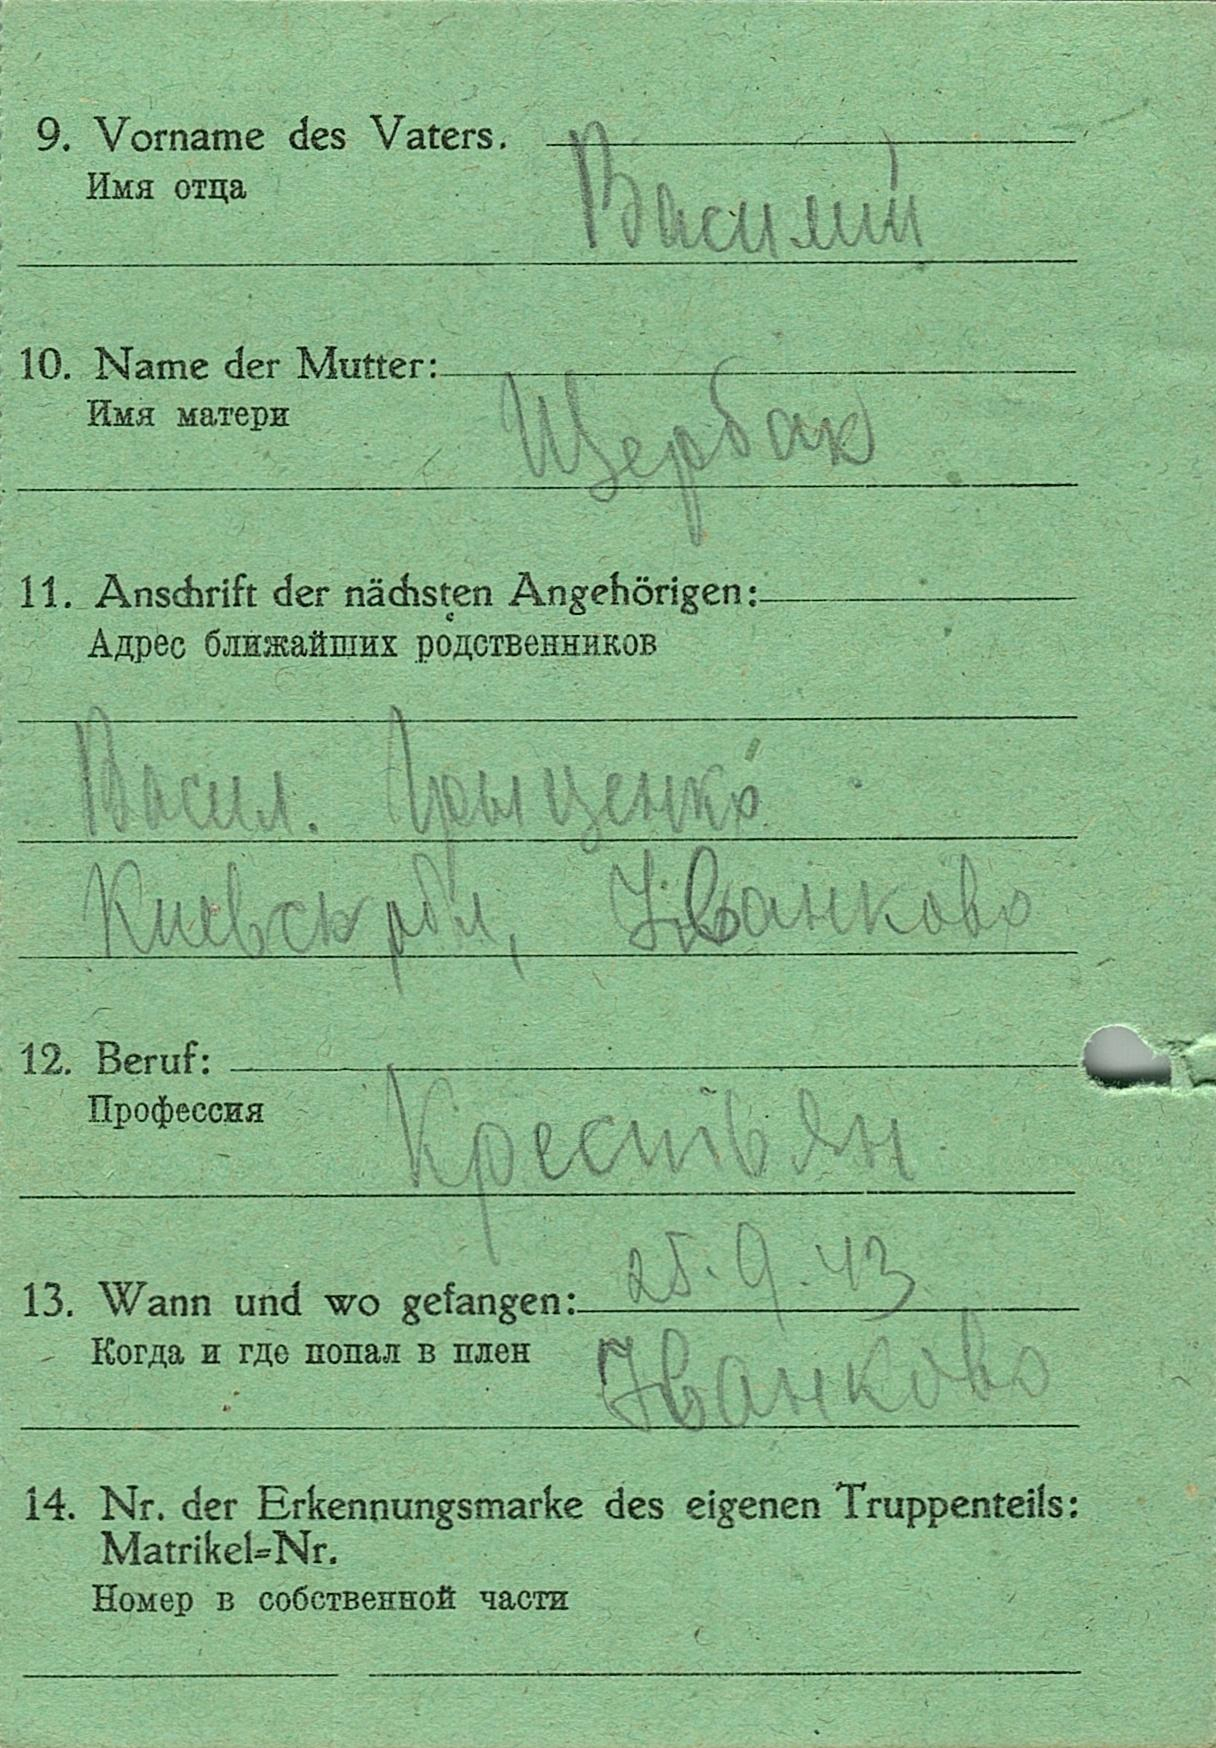 9. Vorname des Vaters.
Имя отца
Василий
10. Name der Mutter:
Имя матери
Щербак
11. Anschrift der nächsten Angehörigen:
Адрес ближайших родственников
Васил. Грыценко
Киевск обл, Иванково
12. Beruf:
Профессия
Крестьян
25.9.43
13. Wann und wo gefangen:
Когда и где попал в плен
Иванково
14. Nr. der Erkennungsmarke des eigenen Truppenteils:
Matrikel=Nr.
Номер в собственной части